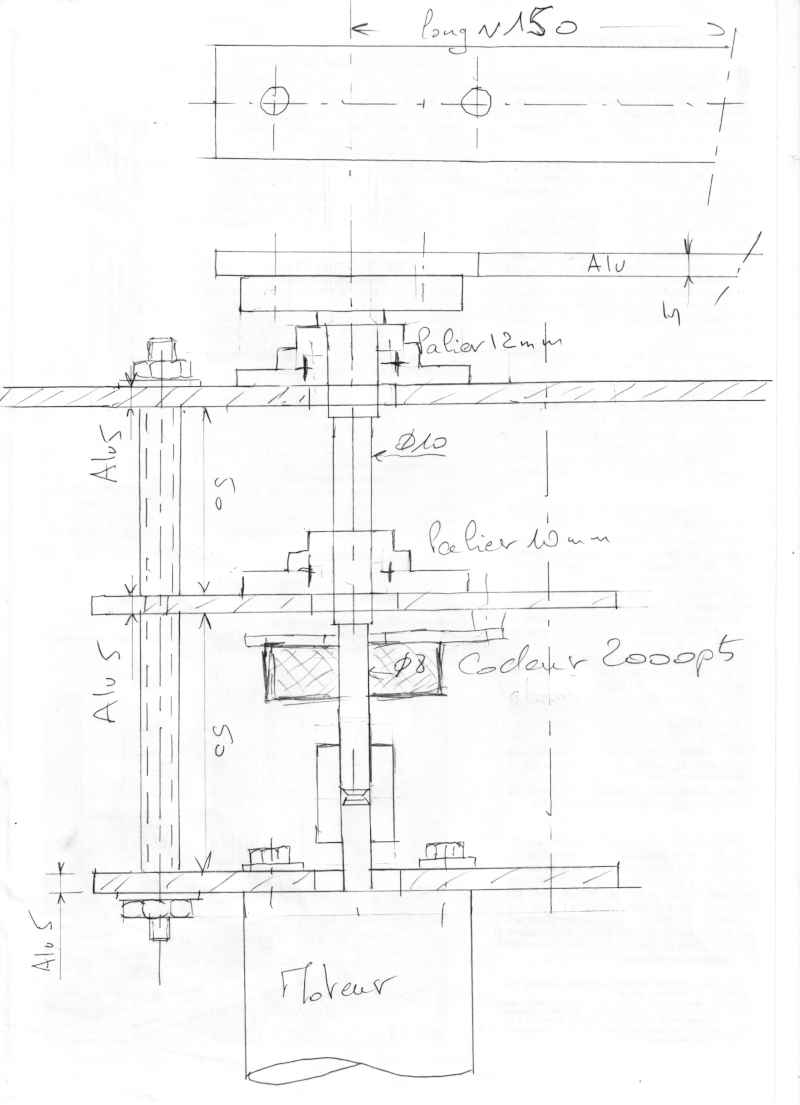 long ~ 150
Alu
5
Palier 12 mm
Alu 5
50
Ø10
Palier 10 mm
Alu 5
50
Ø8
Codeur 2000p5
Alu 5
Moteur